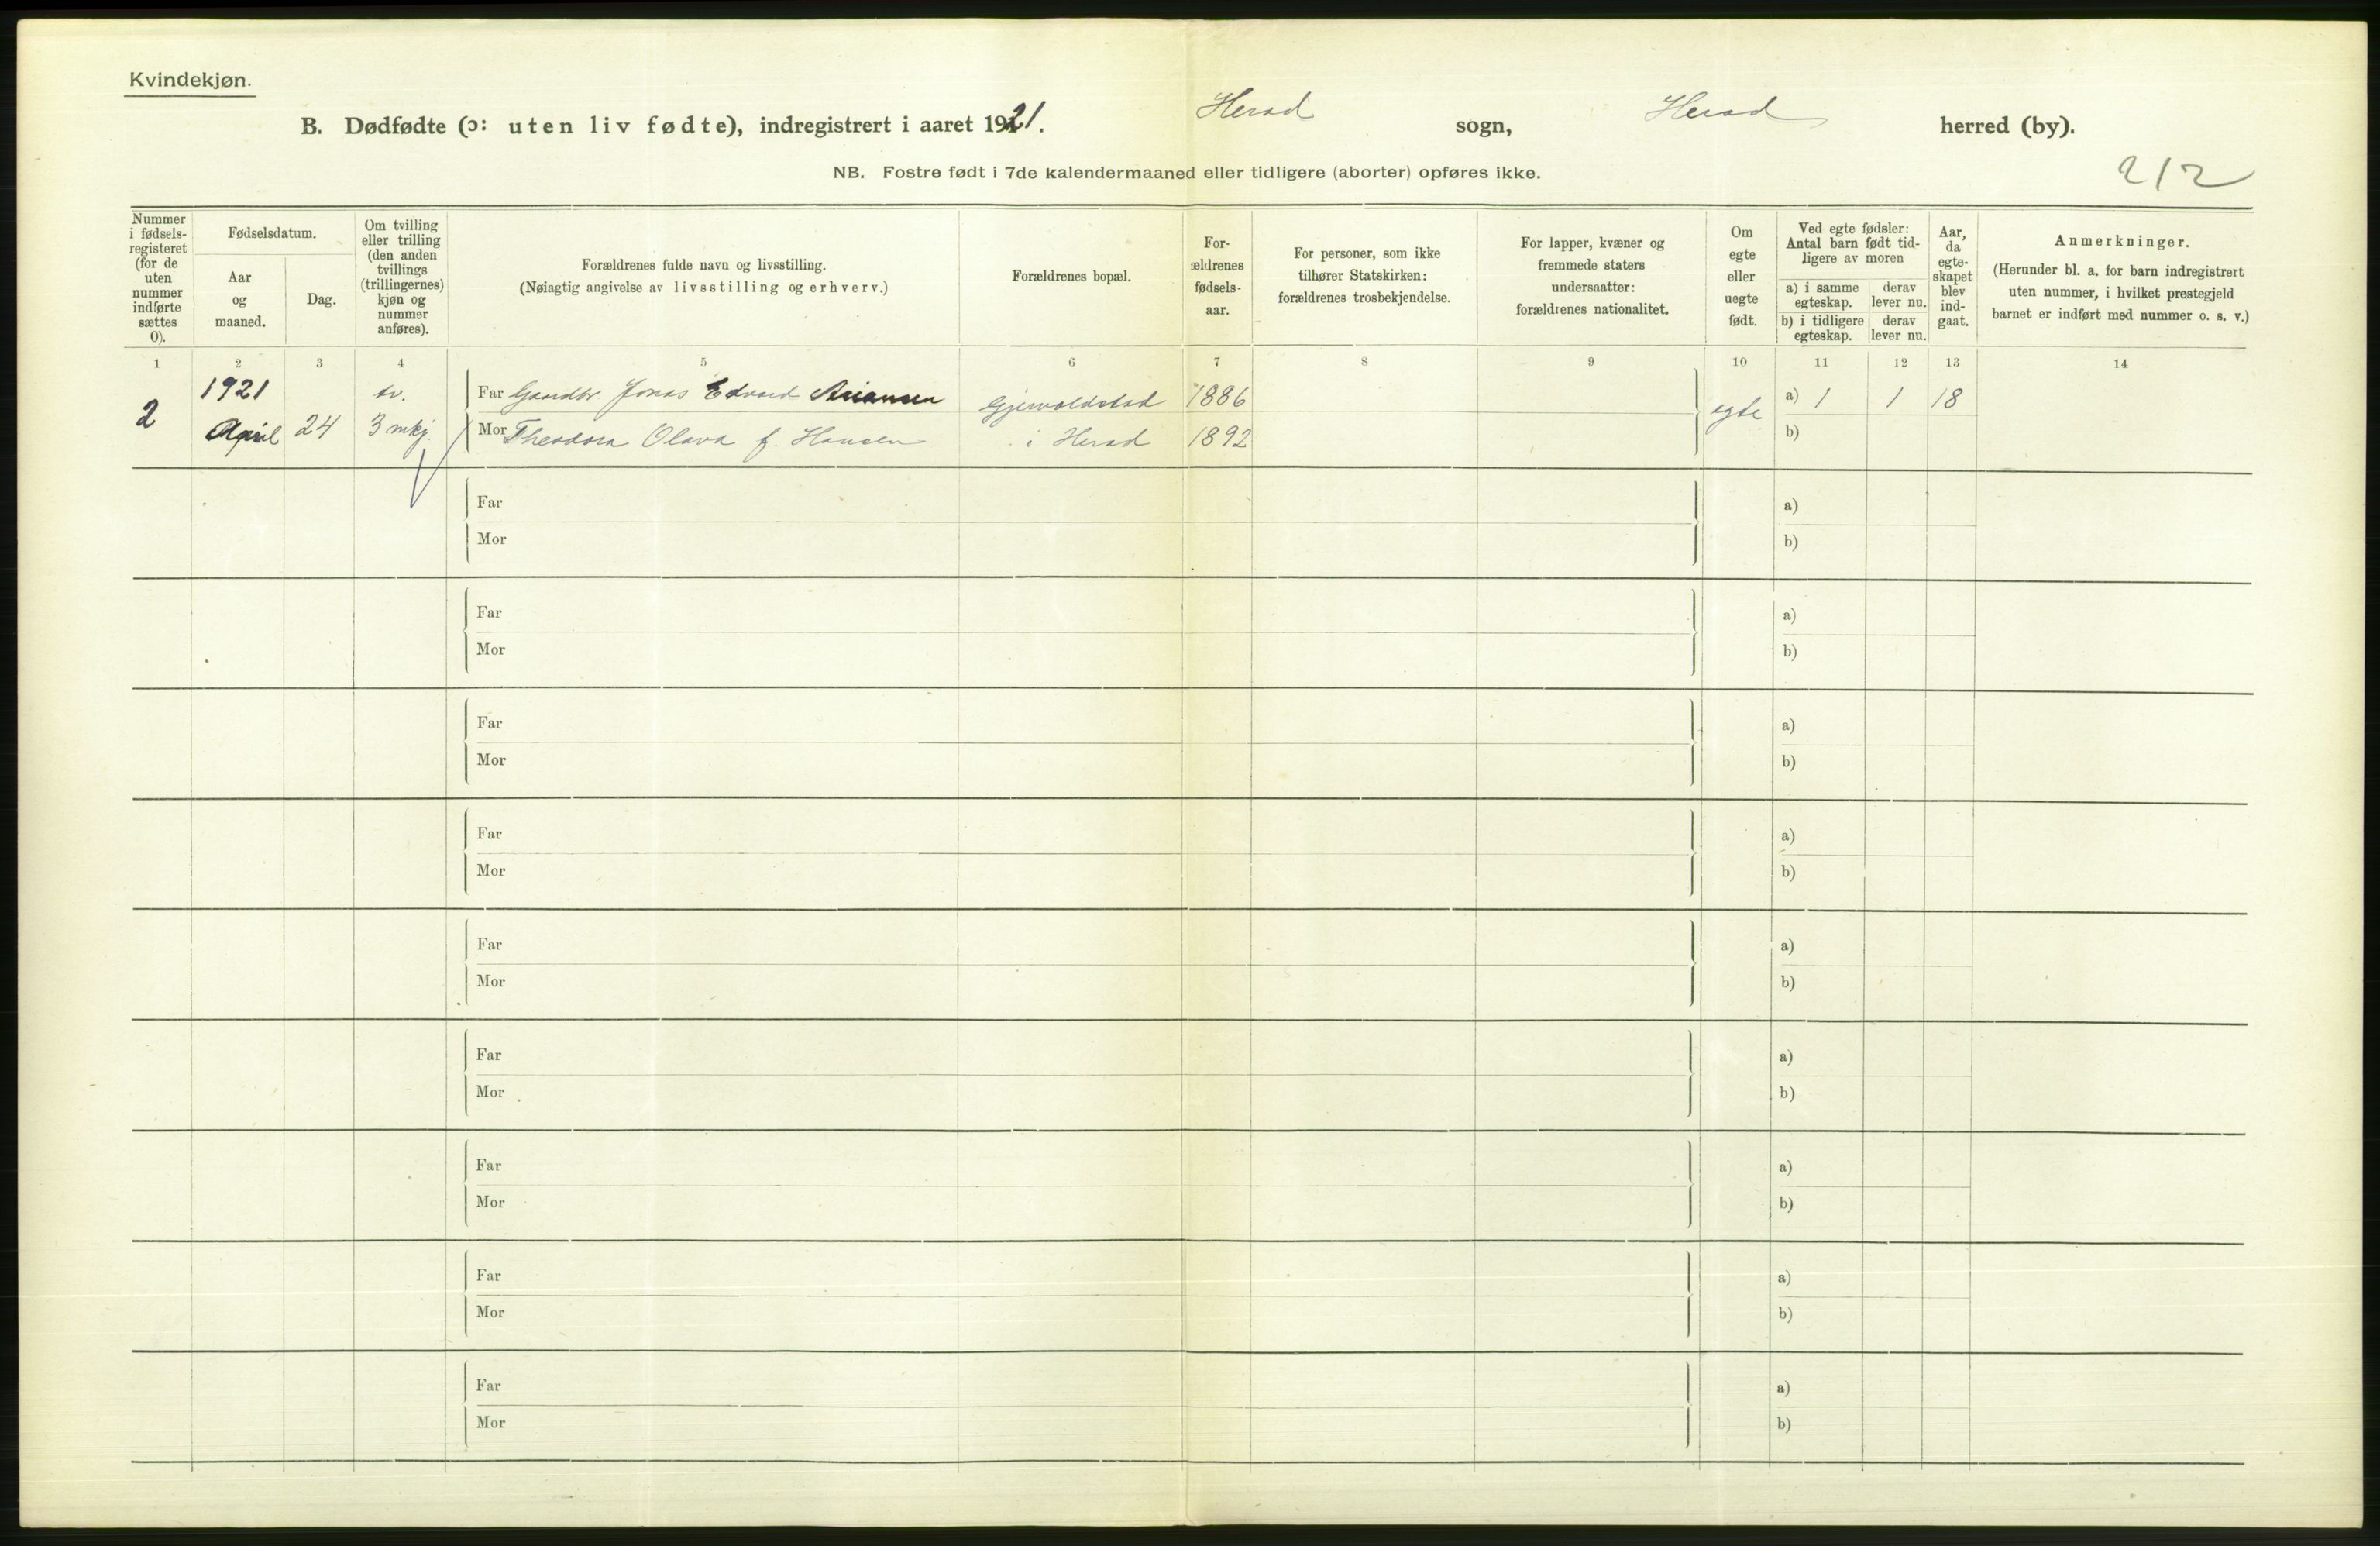 Kvindekjøn.
B. Dødfødte (ɔ: uten liv fødte), indregistrert i aaret 1921. Herad sogn, Herad herred (by).
NB. Fostre født i 7de kalendermaaned eller tidligere (aborter) opføres ikke.
212
Nummer i fødsels-registeret (for de uten nummer indførte sættes 0).
Fødselsdatum.
Aar og maaned.
Dag.
Om tvilling eller trilling (den anden tvillings (trillingernes) kjøn og nummer anføres).
Forældrenes fulde navn og livsstilling.
(Nøiagtig angivelse av livsstilling og erhverv.)
Forældrenes bopæl.
For-ældrenes fødsels-aar.
For personer, som ikke tilhører Statskirken: forældrenes trosbekjendelse.
For lapper, kvæner og fremmede staters undersaatter: forældrenes nationalitet.
Om egte eller uegte født.
Ved egte fødsler: Antal barn født tid-ligere av moren
a) i samme egteskap.
derav lever nu.
b) i tidligere egteskap.
derav lever nu.
Aar, da egte-skapet blev ind-gaat.
Anmerkninger.
(Herunder bl. a. for barn indregistrert uten nummer, i hvilket prestegjeld barnet er indført med nummer o. s. v.)
1 2 3 4 5 6 7 8 9 10 11 12 13 14
2 1921 April 24 tv. 3 mkj.
Far Gaardbr. Jonas Edvard 1886 egte a) 1 1 18
Mor Theodora Olava f. Hansen i Herad 1892 b)
Far a)
Mor b)
Far a)
Mor b)
Far a)
Mor b)
Far a)
Mor b)
Far a)
Mor b)
Far a)
Mor b)
Far a)
Mor b)
Far a)
Mor b)
Far a)
Mor b)